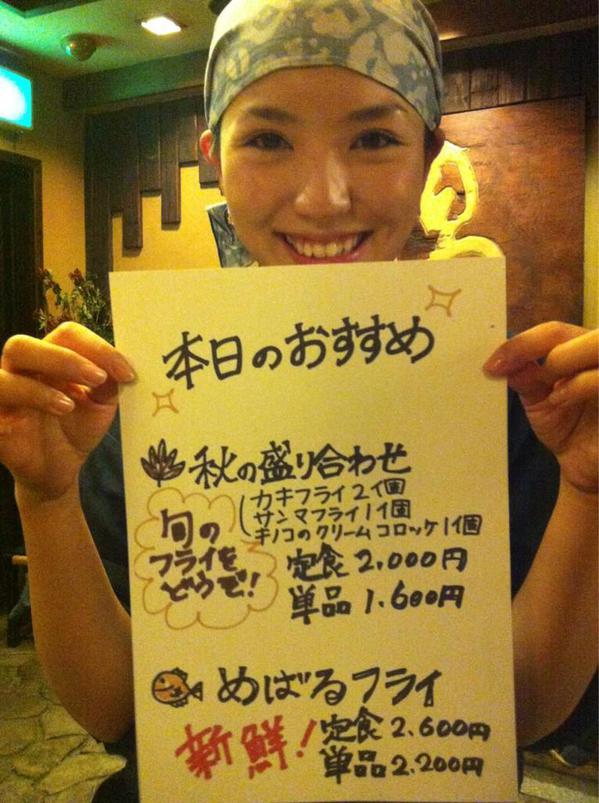 本日のおすすめ
秋の盛り合わせ
カキフライ2個
サンマフライ1個
キノコのクリームコロッケ1個
旬の
フライを
どうぞ!
定食2.000円
単品1.600円
めばるフライ
新鮮!
定食2.600円
単品2.200円